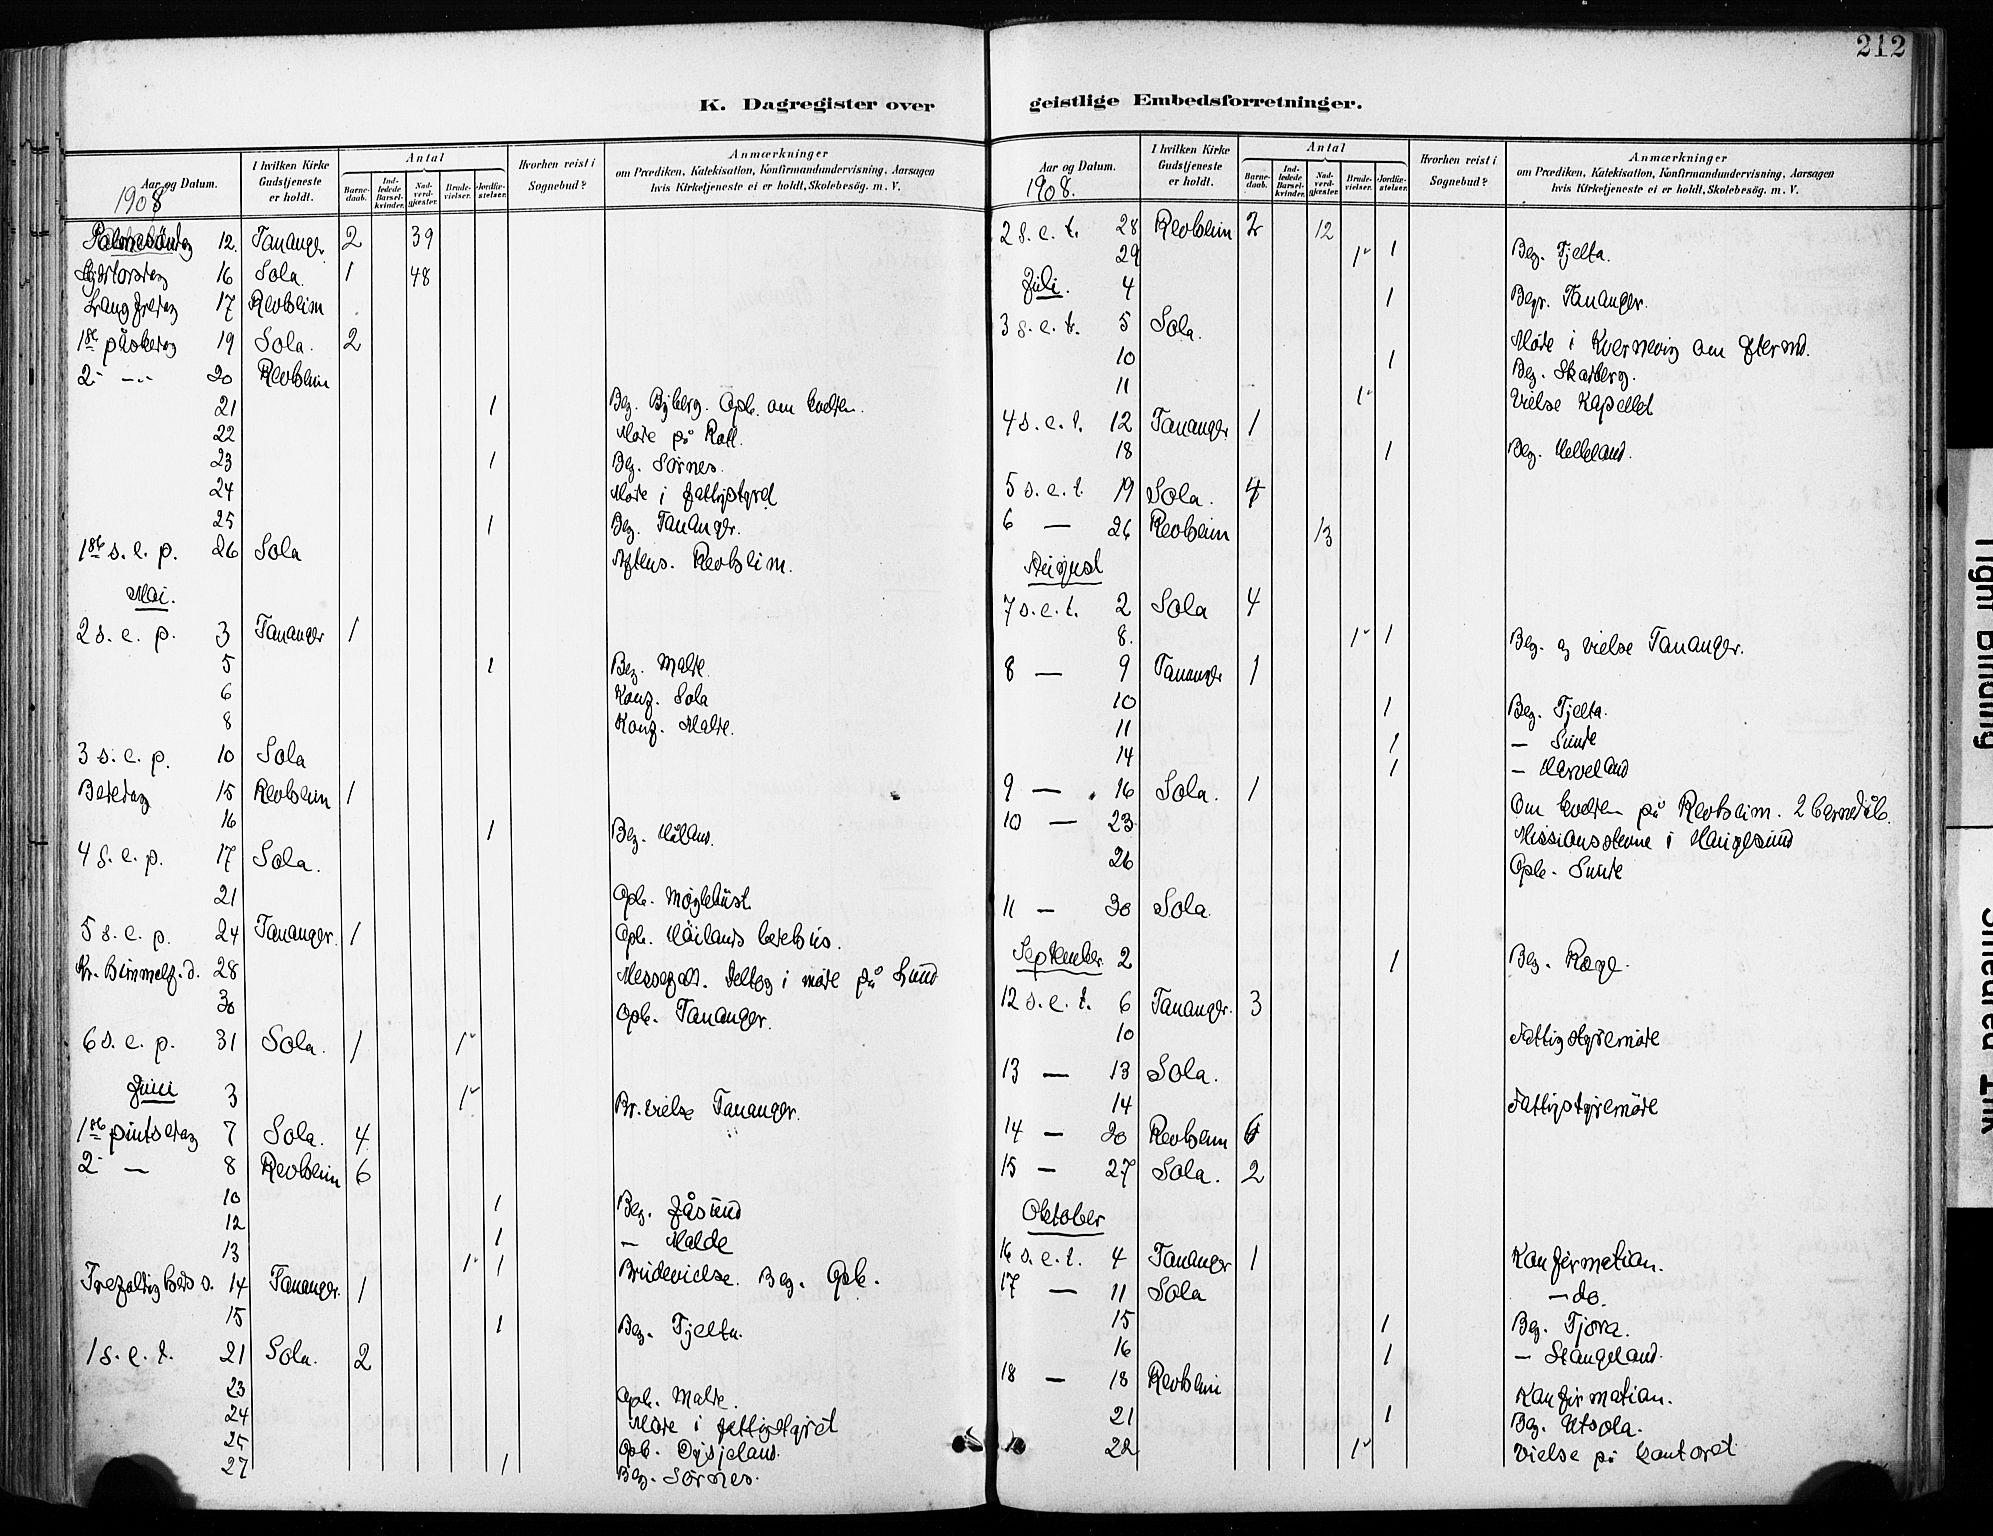 212
K. Dagregister over geistlige Embedsforretninger.
Aar og Datum.
1908
I hvilken Kirke Gudstjeneste er holdt.
Antal
Barnedaab.
Indledede Barselkvinder.
Nadverdgjester.
Brudevielser.
Jordfæstelser.
Hvorhen reist i Sognebud?
Anmærkninger
om Prædiken, Katekisation, Konfirmandundervisning, Aarsagen
hvis Kirketjeneste ei er holdt, Skolebesøg. m. V.
Palmesøndag 12. Tananger 2 39
Skjærtorsdag 16 Sola. 1 48
Langfredag 17 Revheim
1ste påskedag 19 Sola. 2
2- -"- 20 Revheim
21 1 Beg. Byberg. Opb. om kvelden.
22 Møde på Rott.
23 1 Beg. Sørnes.
24 Møde i fattigstyret
25 1 Beg. Tananger.
1ste s. e. p. 26 Sola Aftens. Revheim.
Mai.
2 s. e. p. 3 Tananger 1
5 1 Beg. Malde.
6 Konf. Sola
8 Konf. Malde.
3 s. e. p. 10 Sola
Bededag 15 Revheim 1
16 1 Beg. Håland.
4 s. e. p. 17 Sola.
21 Opb. Møglehúst
5 s. e. p. 24 Tananger. 1 Opb. Hålands bedehús.
Kr. himmelf. d. 28 Messefald. Deltog i møde på Lund
30 Opb. Tananger.
6 s. e. p. 31 Sola. 1 1
Júni 3 1 Br. vielse Tananger.
1ste pintsedag 7 Sola. 4
2- — 8 Revheim 6
10 1 Beg. Jåsúnd
12 1 — Malde
13 1 1 Brudevielse. Beg. Opb.
Trefoldigheds s. 14 Tananger. 1
15 1 Beg. Tjelta.
1 s. e. t. 21 Sola. 2
23 Opb. Malde.
24 Møde i fattigstyret
25 Opb.
27 1 Beg. Sørnes.
Aar og Datum.
1908.
I hvilken Kirke Gudstjeneste er holdt.
Antal
Barnedaab.
Indledede Barselkvinder.
Nadverdgjester.
Brudevielser.
Jordfæstelser.
Hvorhen reist i Sognebud?
Anmærkninger
om Prædiken, Katekisation, Konfirmandundervisning, Aarsagen
hvis Kirketjeneste ei er holdt, Skolebesøg. m. V.
2 s. e. t. 28 Revheim 2 12
29 1 1 Beg. Tjelta.
Júli. 4 1 Begr. Tananger.
3 s. e. t. 5 Sola. Møde i Kvernevig om eftermd.
10 1 Beg. Skadberg.
11 1 Vielse Kapellet
4 s. e. t. 12 Tananger 1
18 1 Beg. Helleland.
5 s. e. t. 19 Sola. 4
6 — 26 Revheim 13
Aúgust
7 s. e. t. 2 Sola 4
8. 1 1 Beg. og vielse Tananger.
8 — 9 Tananger 1
10 1 Beg. Tjelta.
11 1 — Súnde
14 1 — Harveland
9 — 16 Sola. 1 Om kvelden på Revheim. 2 barnedåb.
10 — 23 Missionsstevne i Haúgesúnd
26 Opb. Súnde
11 — 30 Sola.
September 2 1 Beg. Rage.
12 s. e. t. 6 Tananger. 3
10 Fattigstyremøde
13 — 13 Sola.
14 Fattigstyremøde
14 — 20 Revheim 6
15 — 27 Sola. 2
Oktober
16 s. e. t. 4 Tananger 1 Konfirmation.
17 — 11 Sola — do.
15 1 Beg. Tjora.
16 1 — Stangeland.
18 — 18 Revheim Konfirmation.
21 1 Beg. Utsola.
22 1 Vielse på kontoret